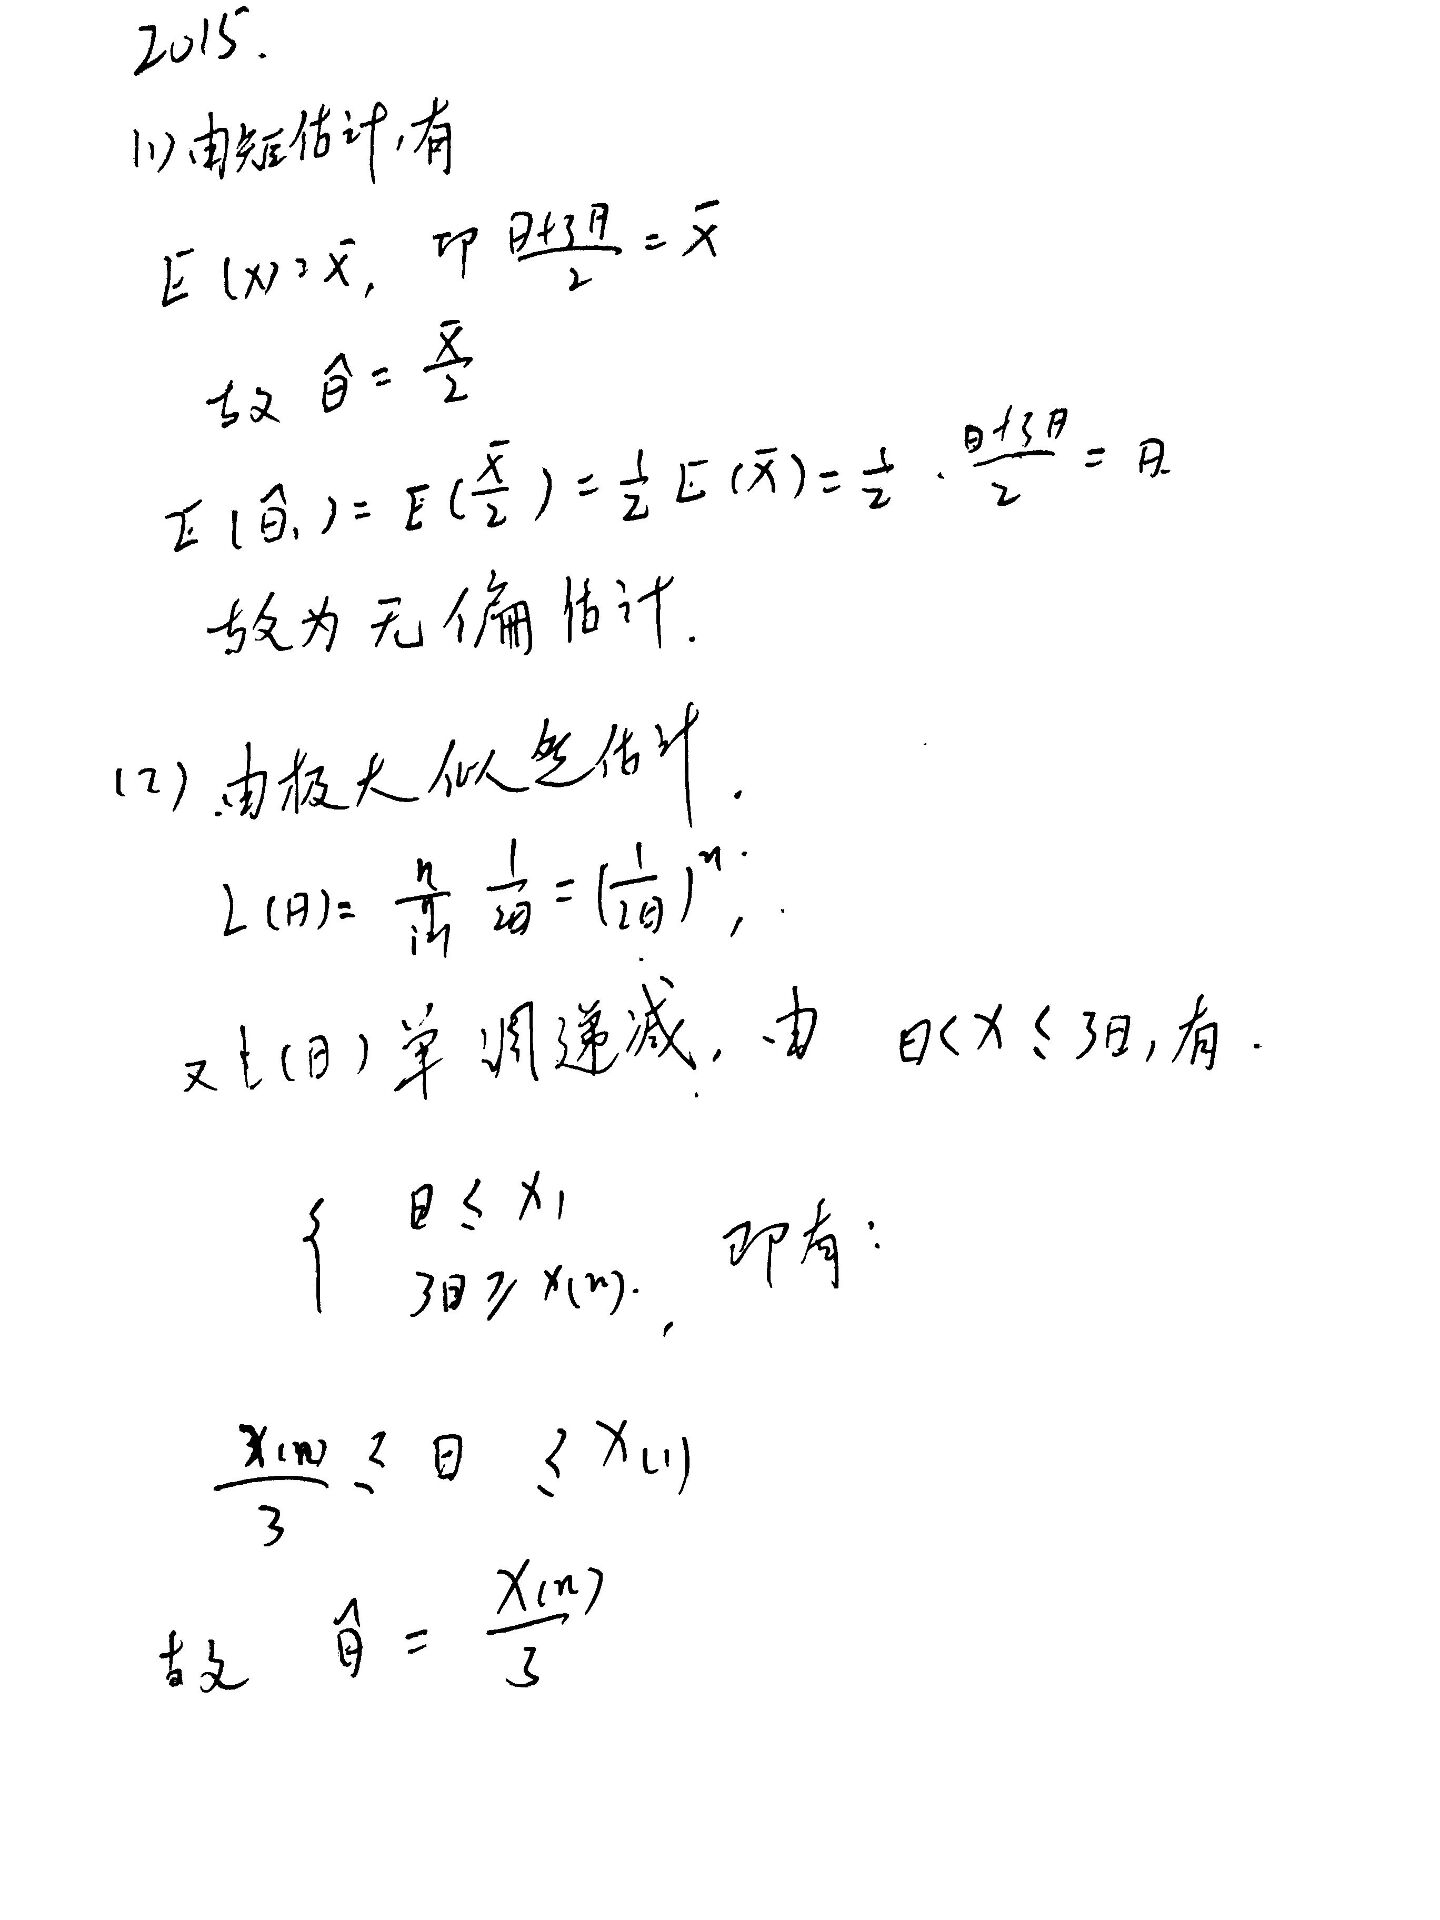 2015.
(1) 由矩估计,有
E(X)=X̄, 即 (θ+3θ)/2 = X̄
故 θ̂ = X̄/2
E(θ̂₁) = E(X̄/2) = 1/2 E(X̄) = 1/2 · (θ+3θ)/2 = θ
故为无偏估计.
(2) 由极大似然估计.
L(θ) = ∏_{i=1}^{n} 1/(2θ) = (1/(2θ))ⁿ,
又L(θ)单调递减, 由 θ<X≤3θ, 有.
{ θ ≤ X₁
3θ ≥ X(n). , 即有:
X(n)/3 ≤ θ ≤ X(1)
故 θ̂ = X(n)/3